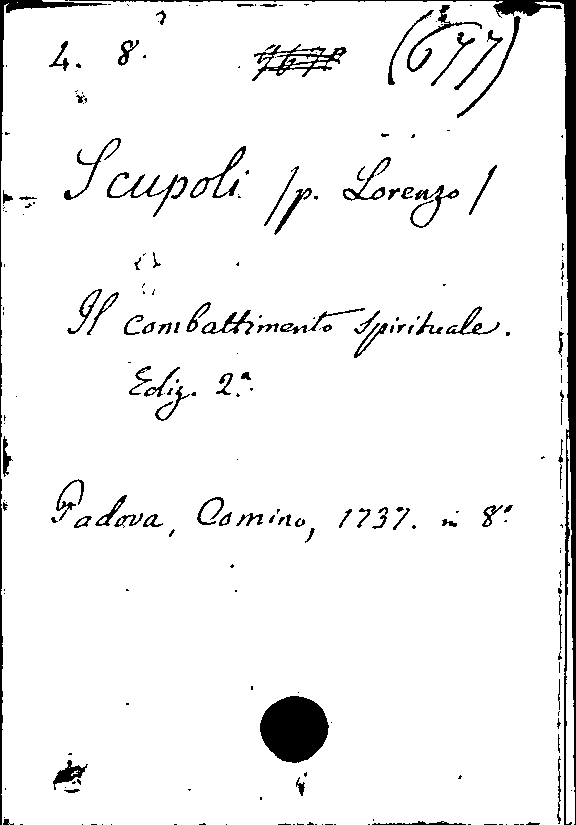 4. 8. (677)
Scupoli /p. Lorenzo/
Il combattimento spirituale.
Ediz. 2.ª
Padova, Comino, 1737. in 8º